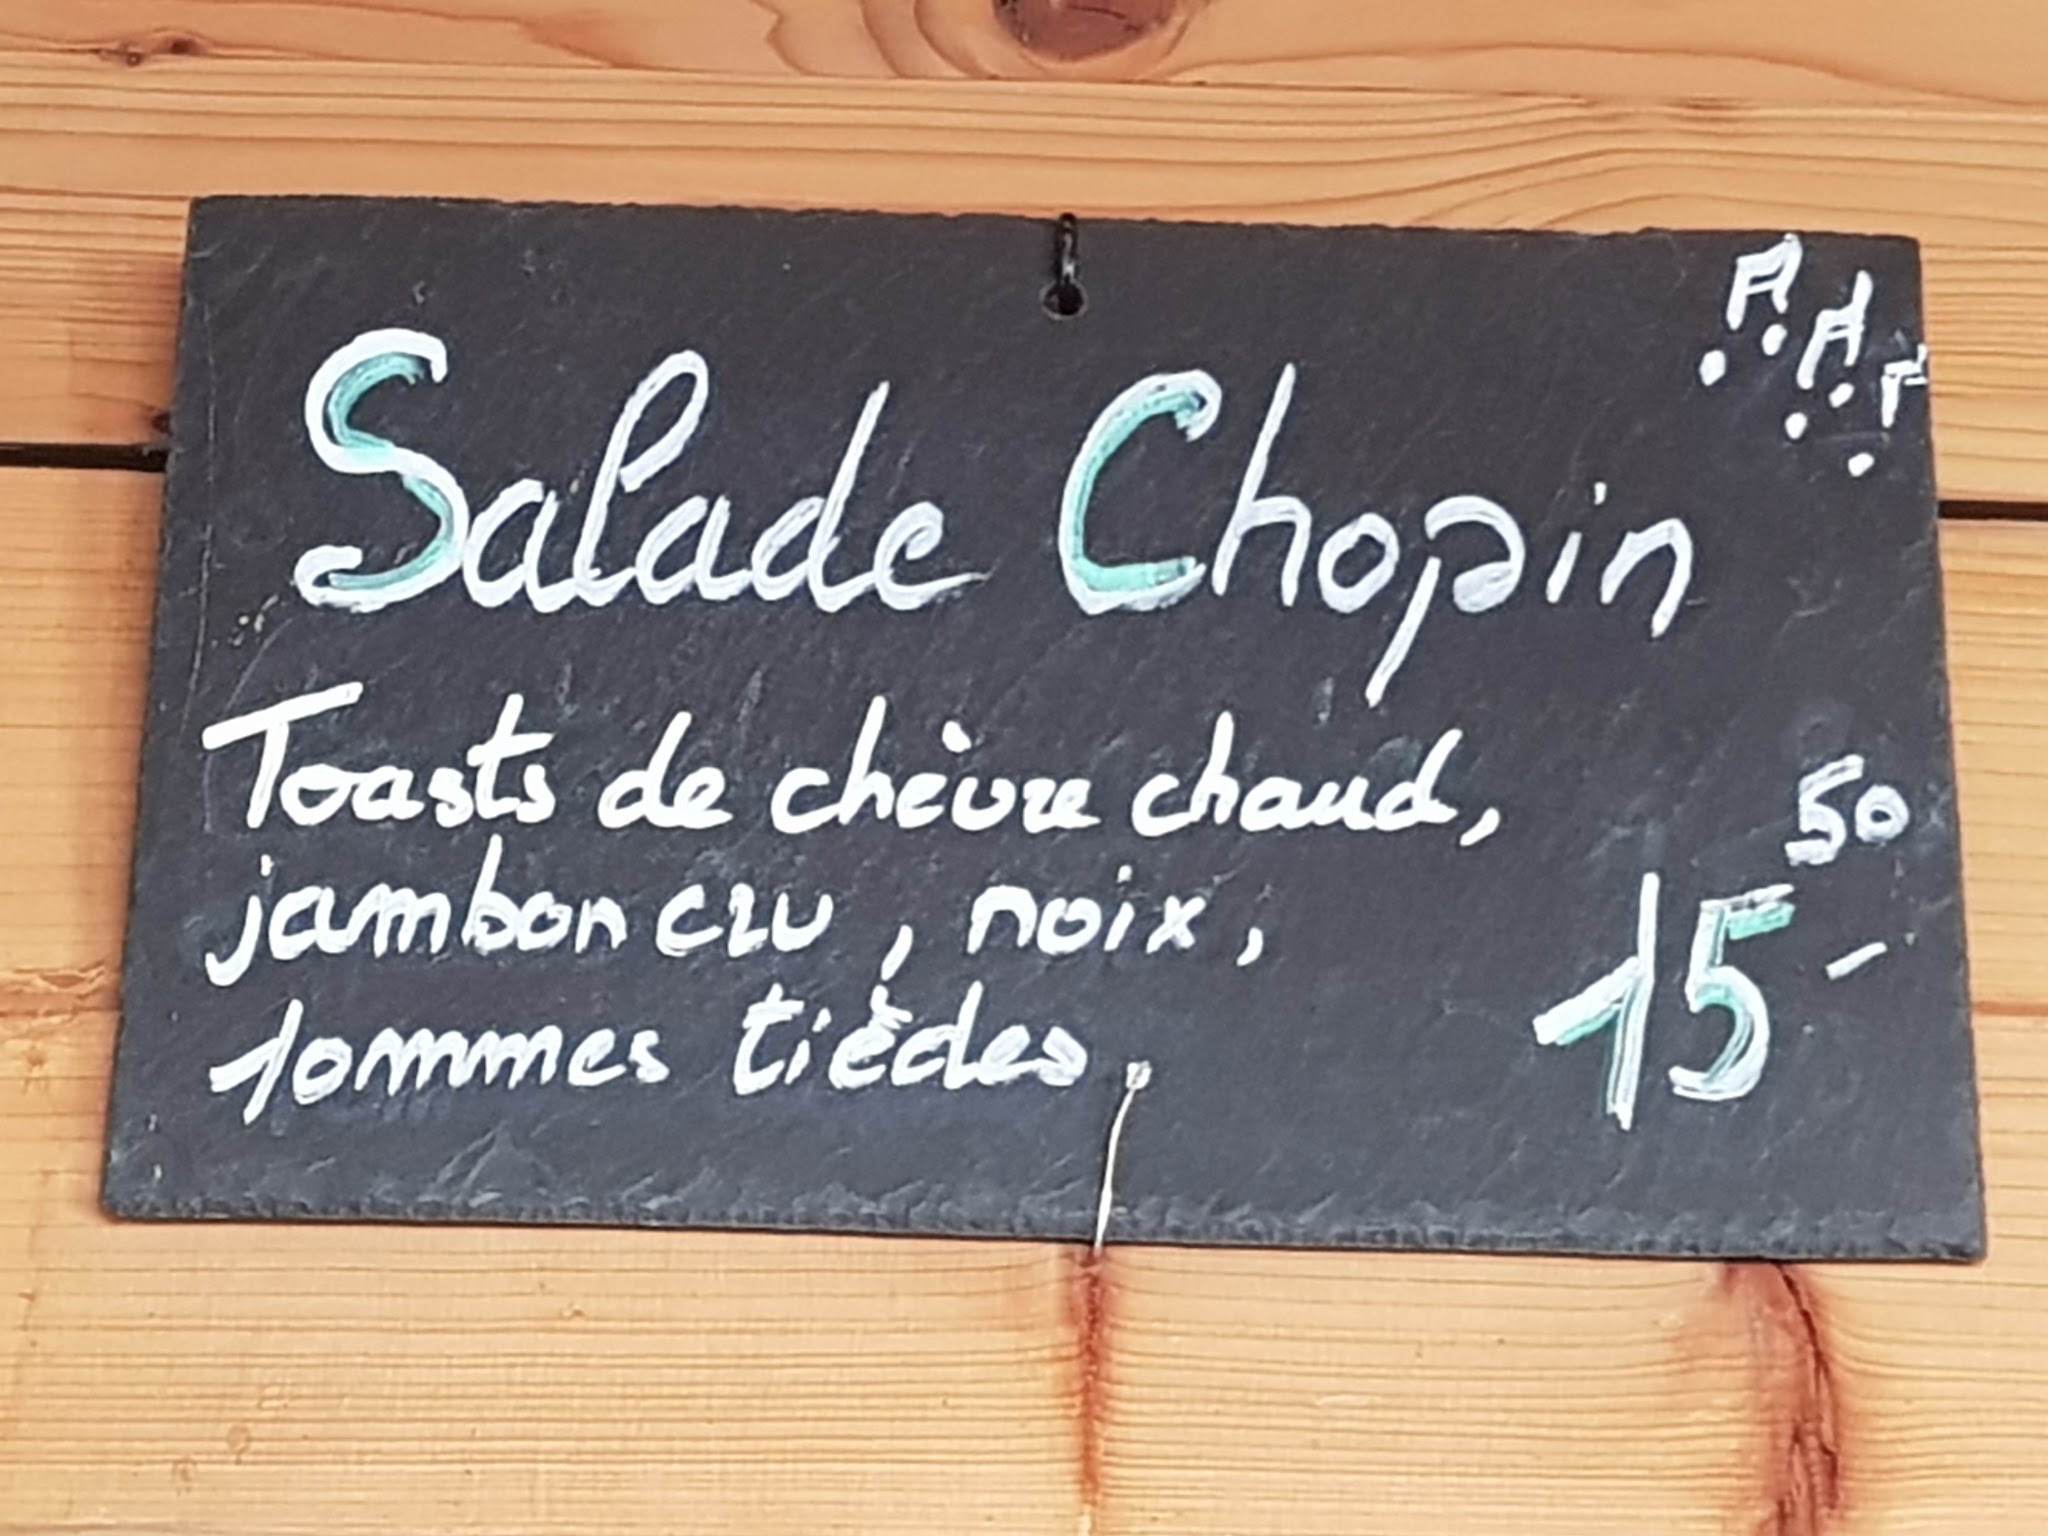 Salade Chopin
Toasts de chèvre chaud,
jambon cru, noix,
pommes tièdes.
15 50